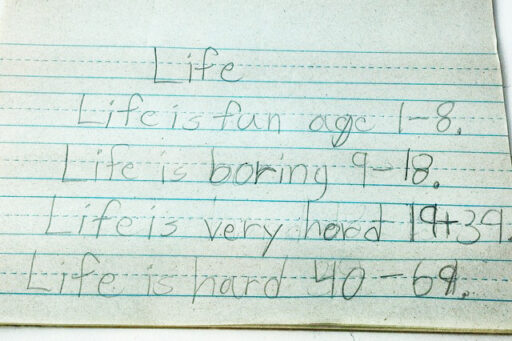 Life
Life is fun age 1-8.
Life is boring 9-18.
Life is very hard 19+39.
Life is hard 40-69.